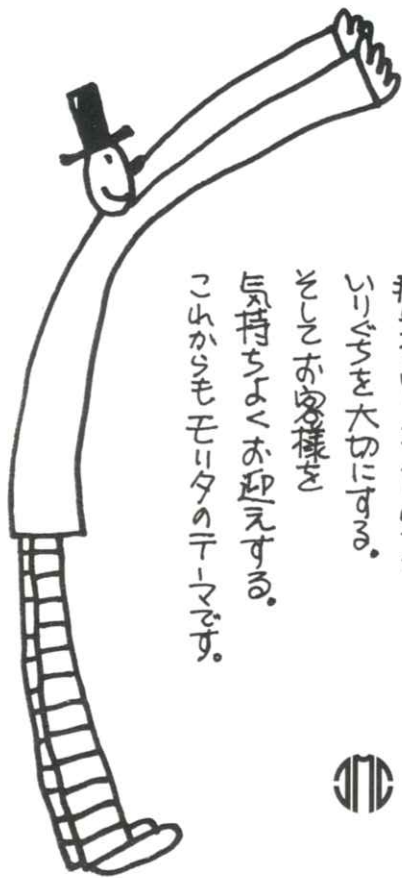 いりぐちを大切にする。
そしてお客様を
気持ちよくお迎えする。
これからもモリタのテーマです。
JMC